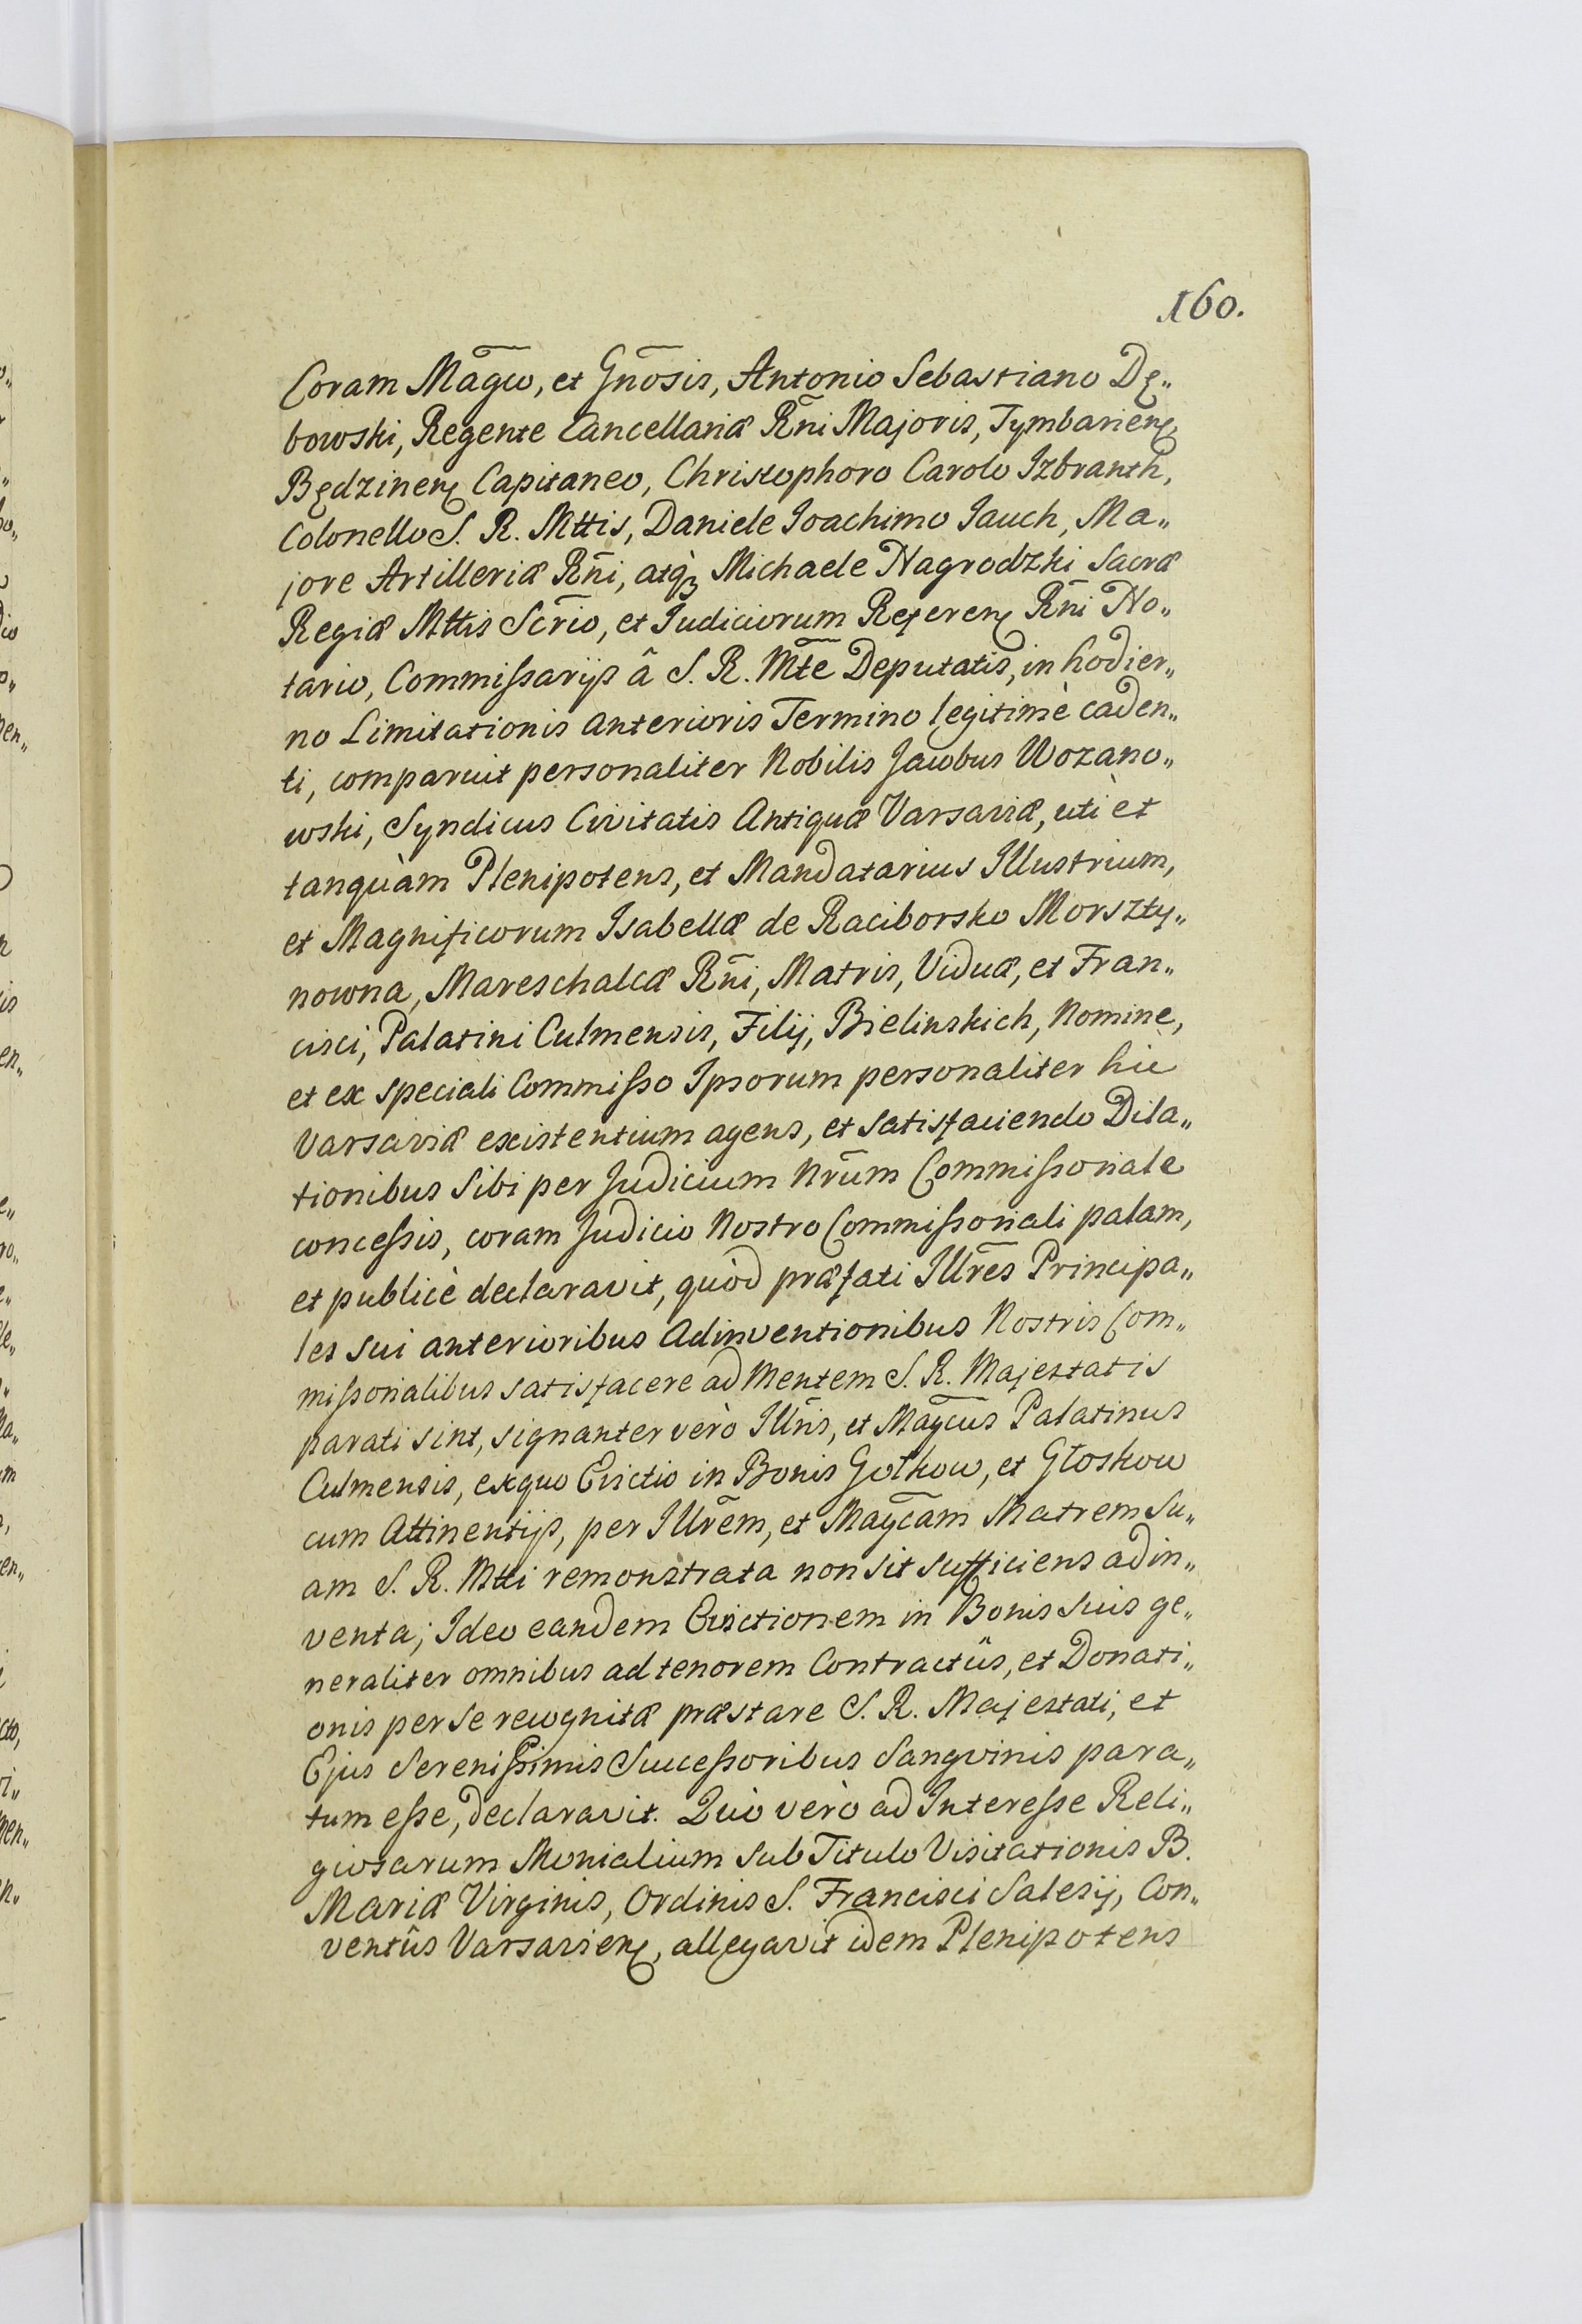 160.
Coram Magco, et Gnosis, Antonio Sebastiano Dę„
bowski, Regente Cancellariæ Rni Majoris, Tymbarien,
Będzinen, Capitaneo, Christophoro Carolo Izbranth,
Colonello S. R. Mttis, Daniele Ioachimo Iauch, Ma„
jore Artilleriæ Rni, atq Michaele Nagrodzki Sacræ
Regiæ Mttis Scrio, et Iudiciorum Referen, Rni No„
tario, Commißarijs â S. R. Mte Deputatis, in hodier„
no Limitationis anterioris Termino legitimè caden„
ti, comparuit personaliter Nobilis Jacobus Wozano„
wski, Syndicus Civitatis Antiquæ Varsaviæ, uti et
tanquàm Plenipotens, et Mandatarius Illustrium,
et Magnificorum Isabellæ de Raciborsko Morszty„
nowna, Mareschalcæ Rni, Matris, Viduæ, et Fran„
cisci, Palatini Culmensis, Filij, Bielinskich, Nomine,
et ex speciali Commißo Ipsorum personaliter hic
Varsaviæ existentium agens, et satisfaciendo Dila„
tionibus Sibi per Judicium Nrum Commißoriale
conceßis, coram Judicio Nostro Commißoriali palam,
et publicè declaravit, quòd præfati Illres Principa„
les sui anterioribus Adinventionibus Nostris Com„
mißorialibus satisfacere ad Mentem S. R. Majestatis
parati sint, signanter verò Illris, et Magcus Palatinus
Culmensis, exquo Evictio in Bonis Gołkow, et Głoskow
cum Attinentijs, per Illrem, et Magcam Matrem Su„
am S. R. Mtti remonstrata non sit sufficiens adin„
venta; Ideo eandem Evictionem in Bonis Suis ge„
neraliter omnibus ad tenorem Contractûs, et Donati„
onis per Se recognitæ præstare S. R. Majestati, et
Ejus Sereniſsimis Succeßoribus Sangvinis para„
tum eße, declaravit. Quò verò ad Intereße Reli„
giosarum Monialium sub Titulo Visitationis B.
Mariæ Virginis, Ordinis S. Francisci Salesij, Con„
ventûs Varsavien, allegavit idem Plenipotens